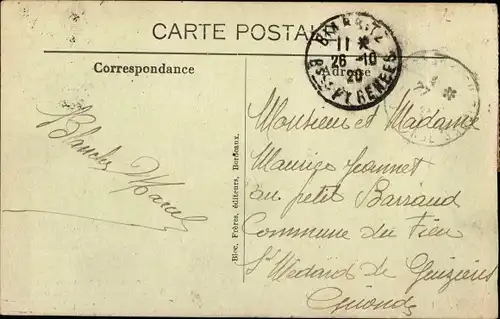 CARTE POSTALE
Correspondance
Adresse
BIARRITZ
11 *
26-10
20
BSES PYRENEES
Blanche Marcel
Bloc, Frères, éditeurs, Bordeaux.
Monsieur et Madame
Maurice Jeannet
au petit Barraud
Commune du Fieu
St Médard de Guizières
Gironde